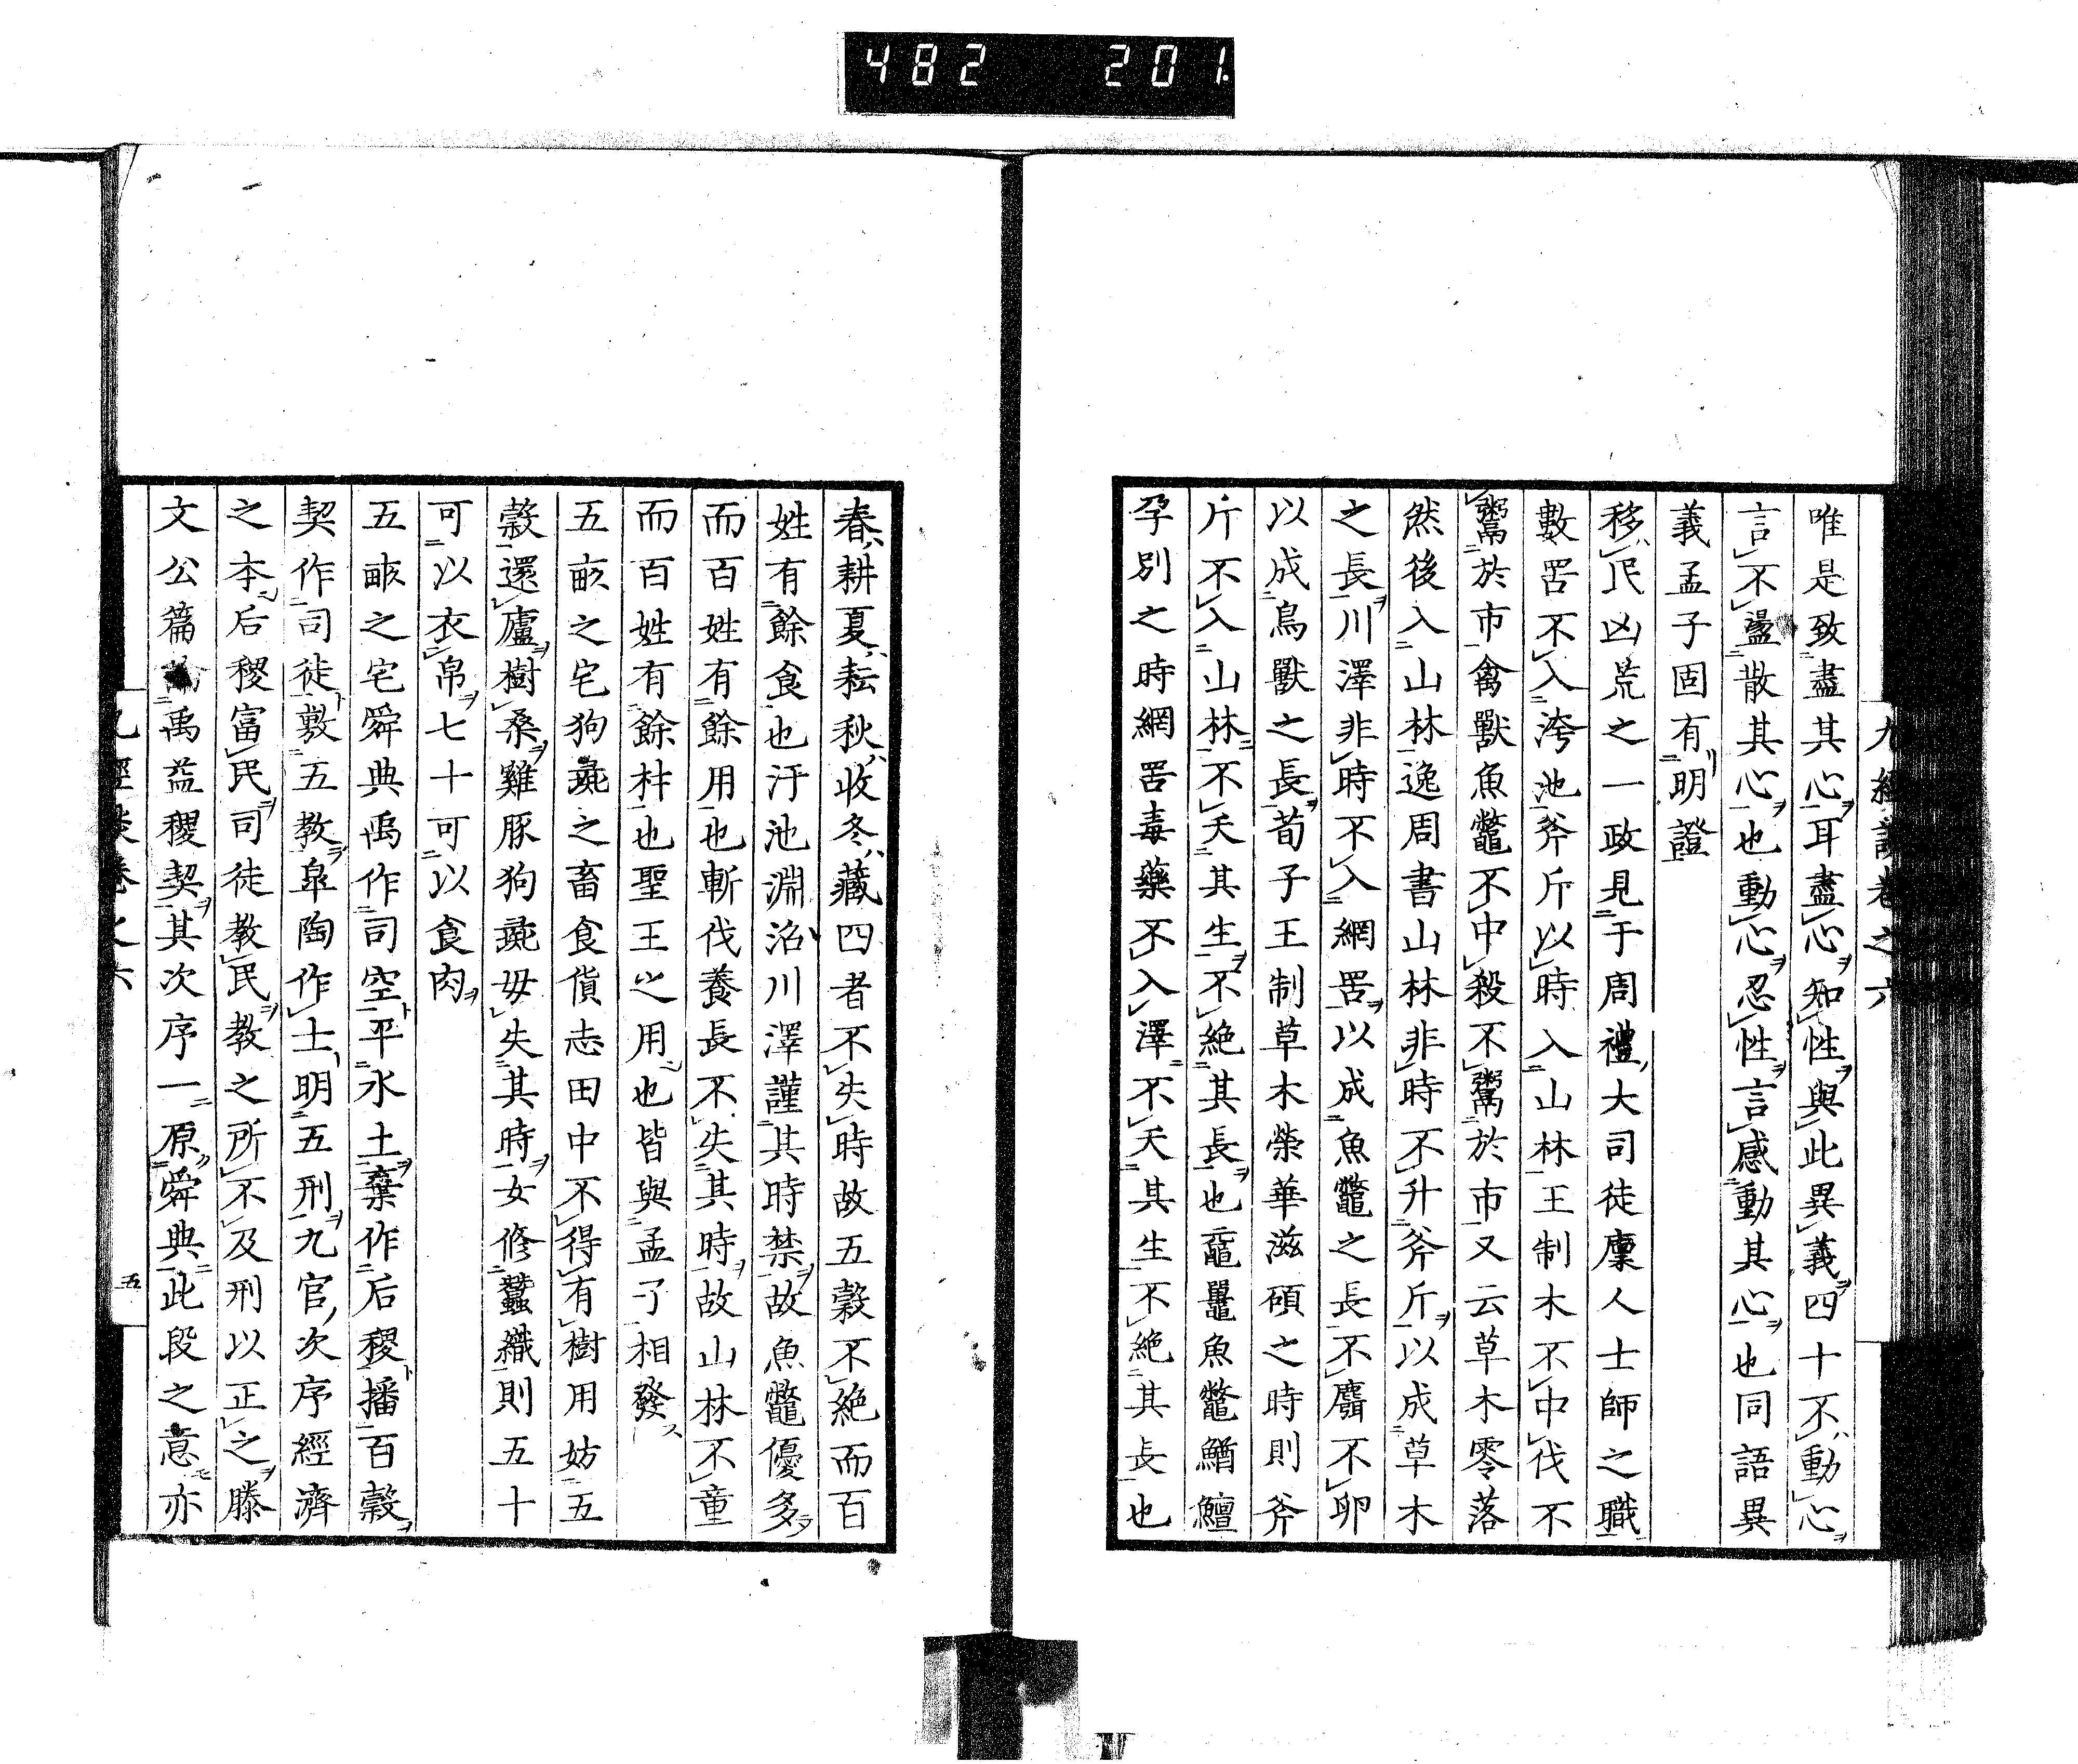 482 201
九經談卷之六
唯是致盡其心耳盡心知性與此異義四十不動心
言不盪散其心也動心忍性言感動其心也同語異
義孟子固有明證
移民凶荒之一政見于周禮大司徒廩人士師之職
數罟不入洿池斧斤以時入山林王制木不中伐不
鬻於市禽獸魚鼈不中殺不鬻於市又云草木零落
然後入山林逸周書山林非時不升斧斤以成草木
之長川澤非時不入網罟以成魚鼈之長不麛不卵
以成鳥獸之長荀子王制草木榮華滋碩之時則斧
斤不入山林不夭其生不絶其長也黿鼉魚鼈鰌鱣
孕別之時網罟毒藥不入澤不夭其生不絶其長也
春耕夏耘秋收冬藏四者不失時故五穀不絶而百
姓有餘食也汙池淵沼川澤謹其時禁故魚鼈優多
而百姓有餘用也斬伐養長不失其時故山林不童
而百姓有餘材也聖王之用也皆與孟子相發
五畝之宅狗彘之畜食貨志田中不得有樹用妨五
穀還廬樹桑雞豚狗彘毋失其時女修蠶織則五十
可以衣帛七十可以食肉
五畝之宅舜典禹作司空平水土棄作后稷播百穀
契作司徒敷五教皐陶作士明五刑九官次序經濟
之本后稷富民司徒教民教之所不及刑以正之滕
文公篇禹益稷契其次序一原舜典此段之意亦
九經談卷之六
五